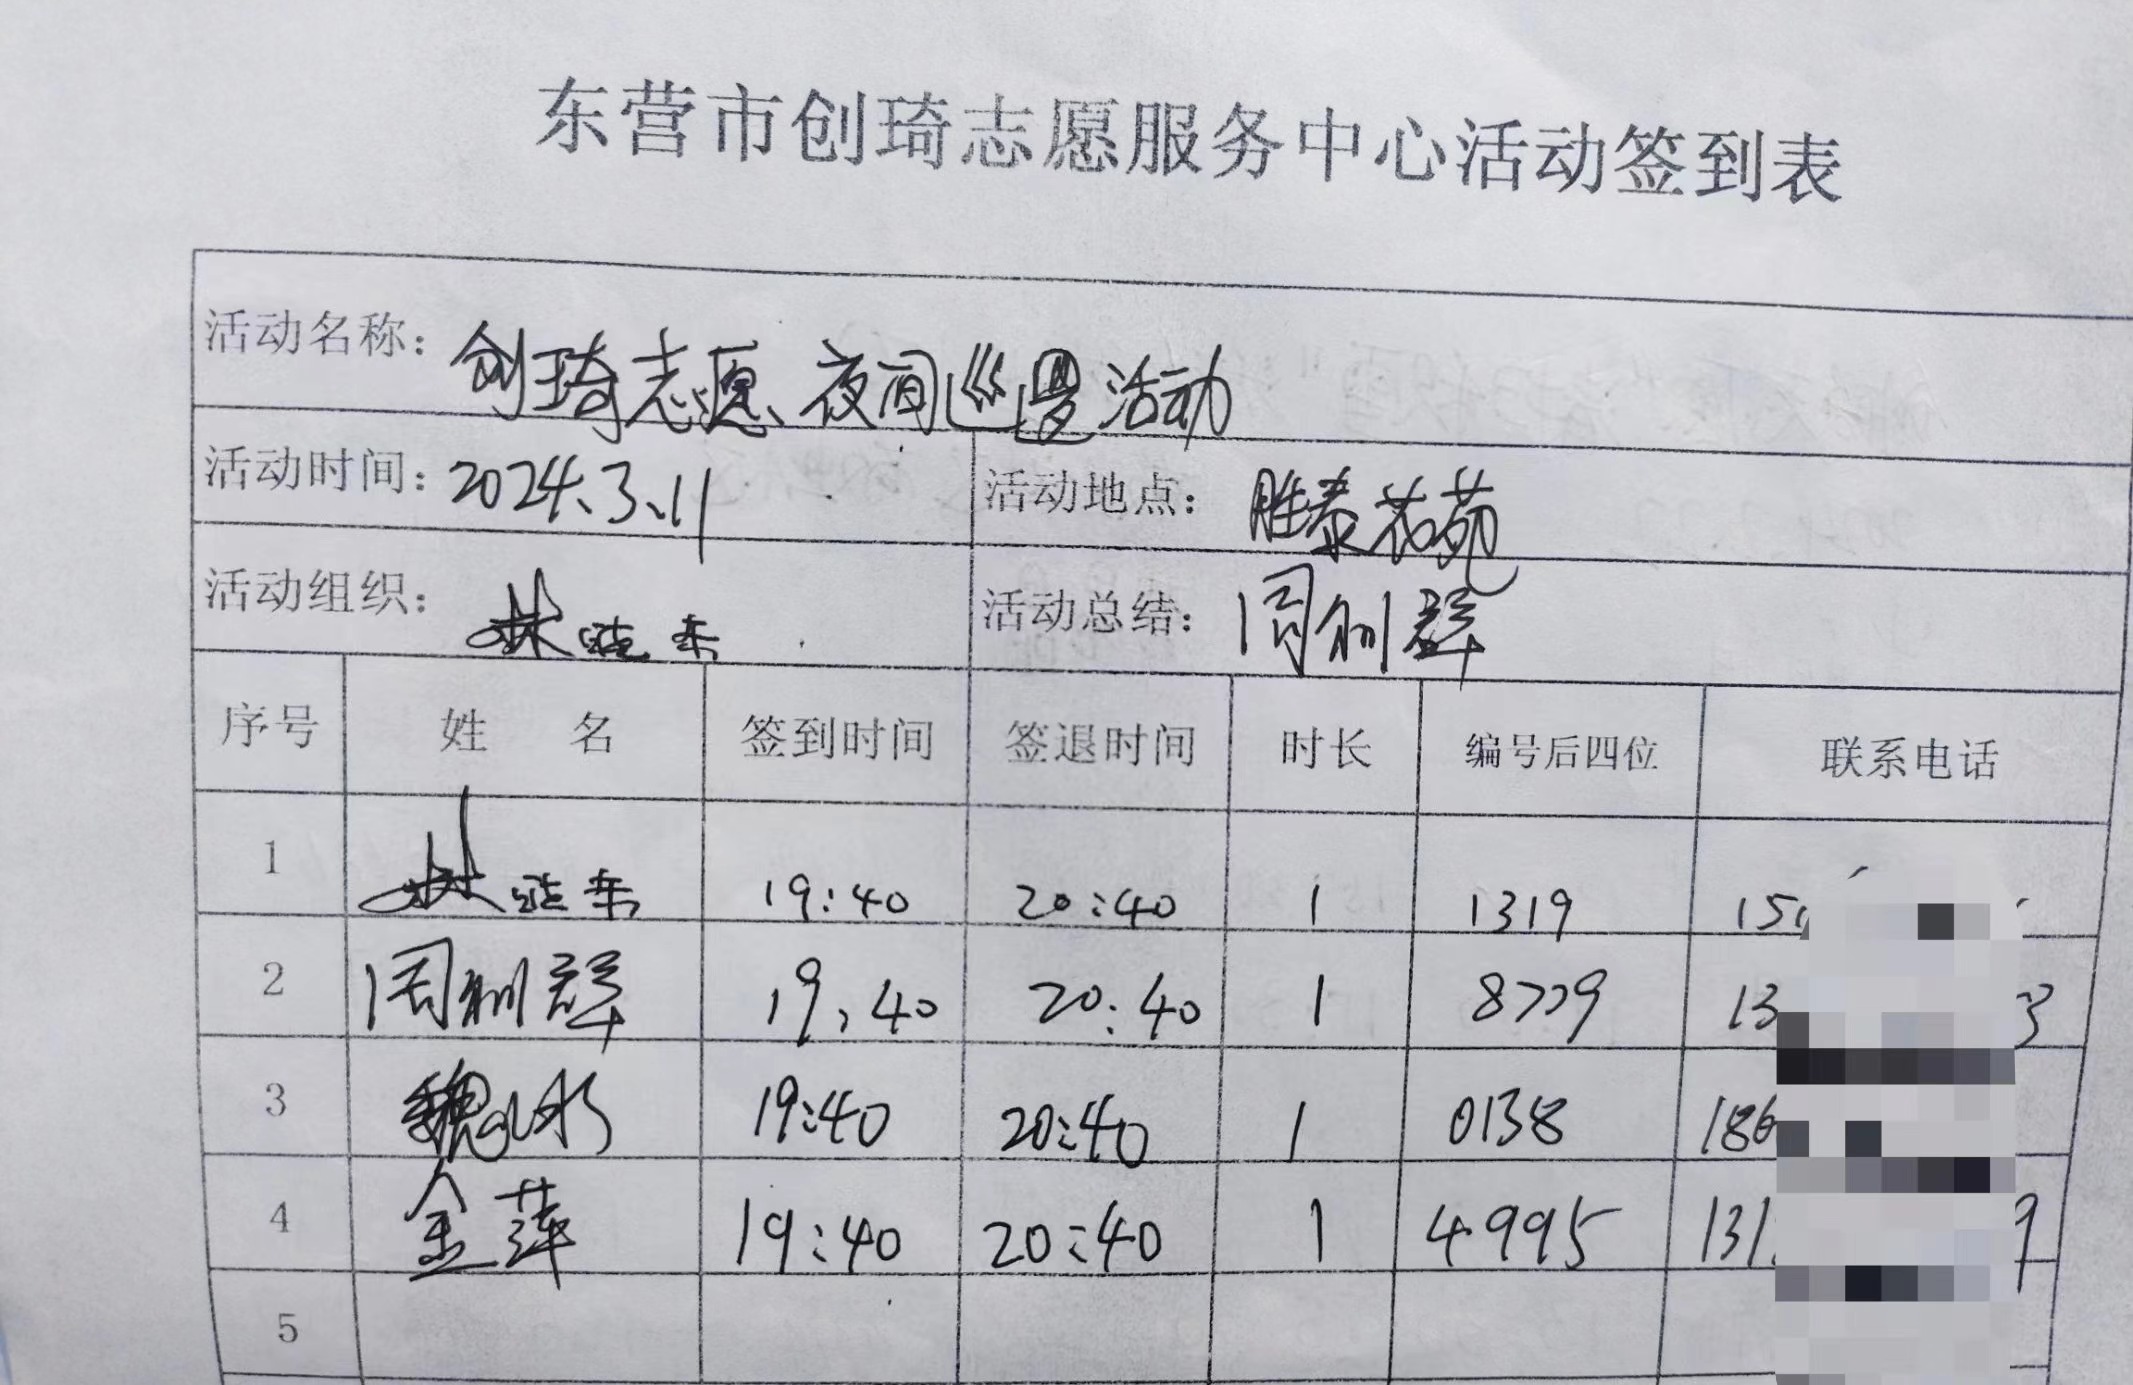 东营市创琦志愿服务中心活动签到表
活动名称：创琦志愿、夜间巡逻活动
活动时间：2024.3.11 活动地点：胜泰花苑
活动组织：林晓东 活动总结：周利群
序号 姓 名 签到时间 签退时间 时长 编号后四位 联系电话
1 林晓东 19:40 20:40 1 1319 150
2 周利群 19:40 20:40 1 8779 13 3
3 魏 19:40 20:40 1 0138 186
4 金萍 19:40 20:40 1 4995 131 9
5